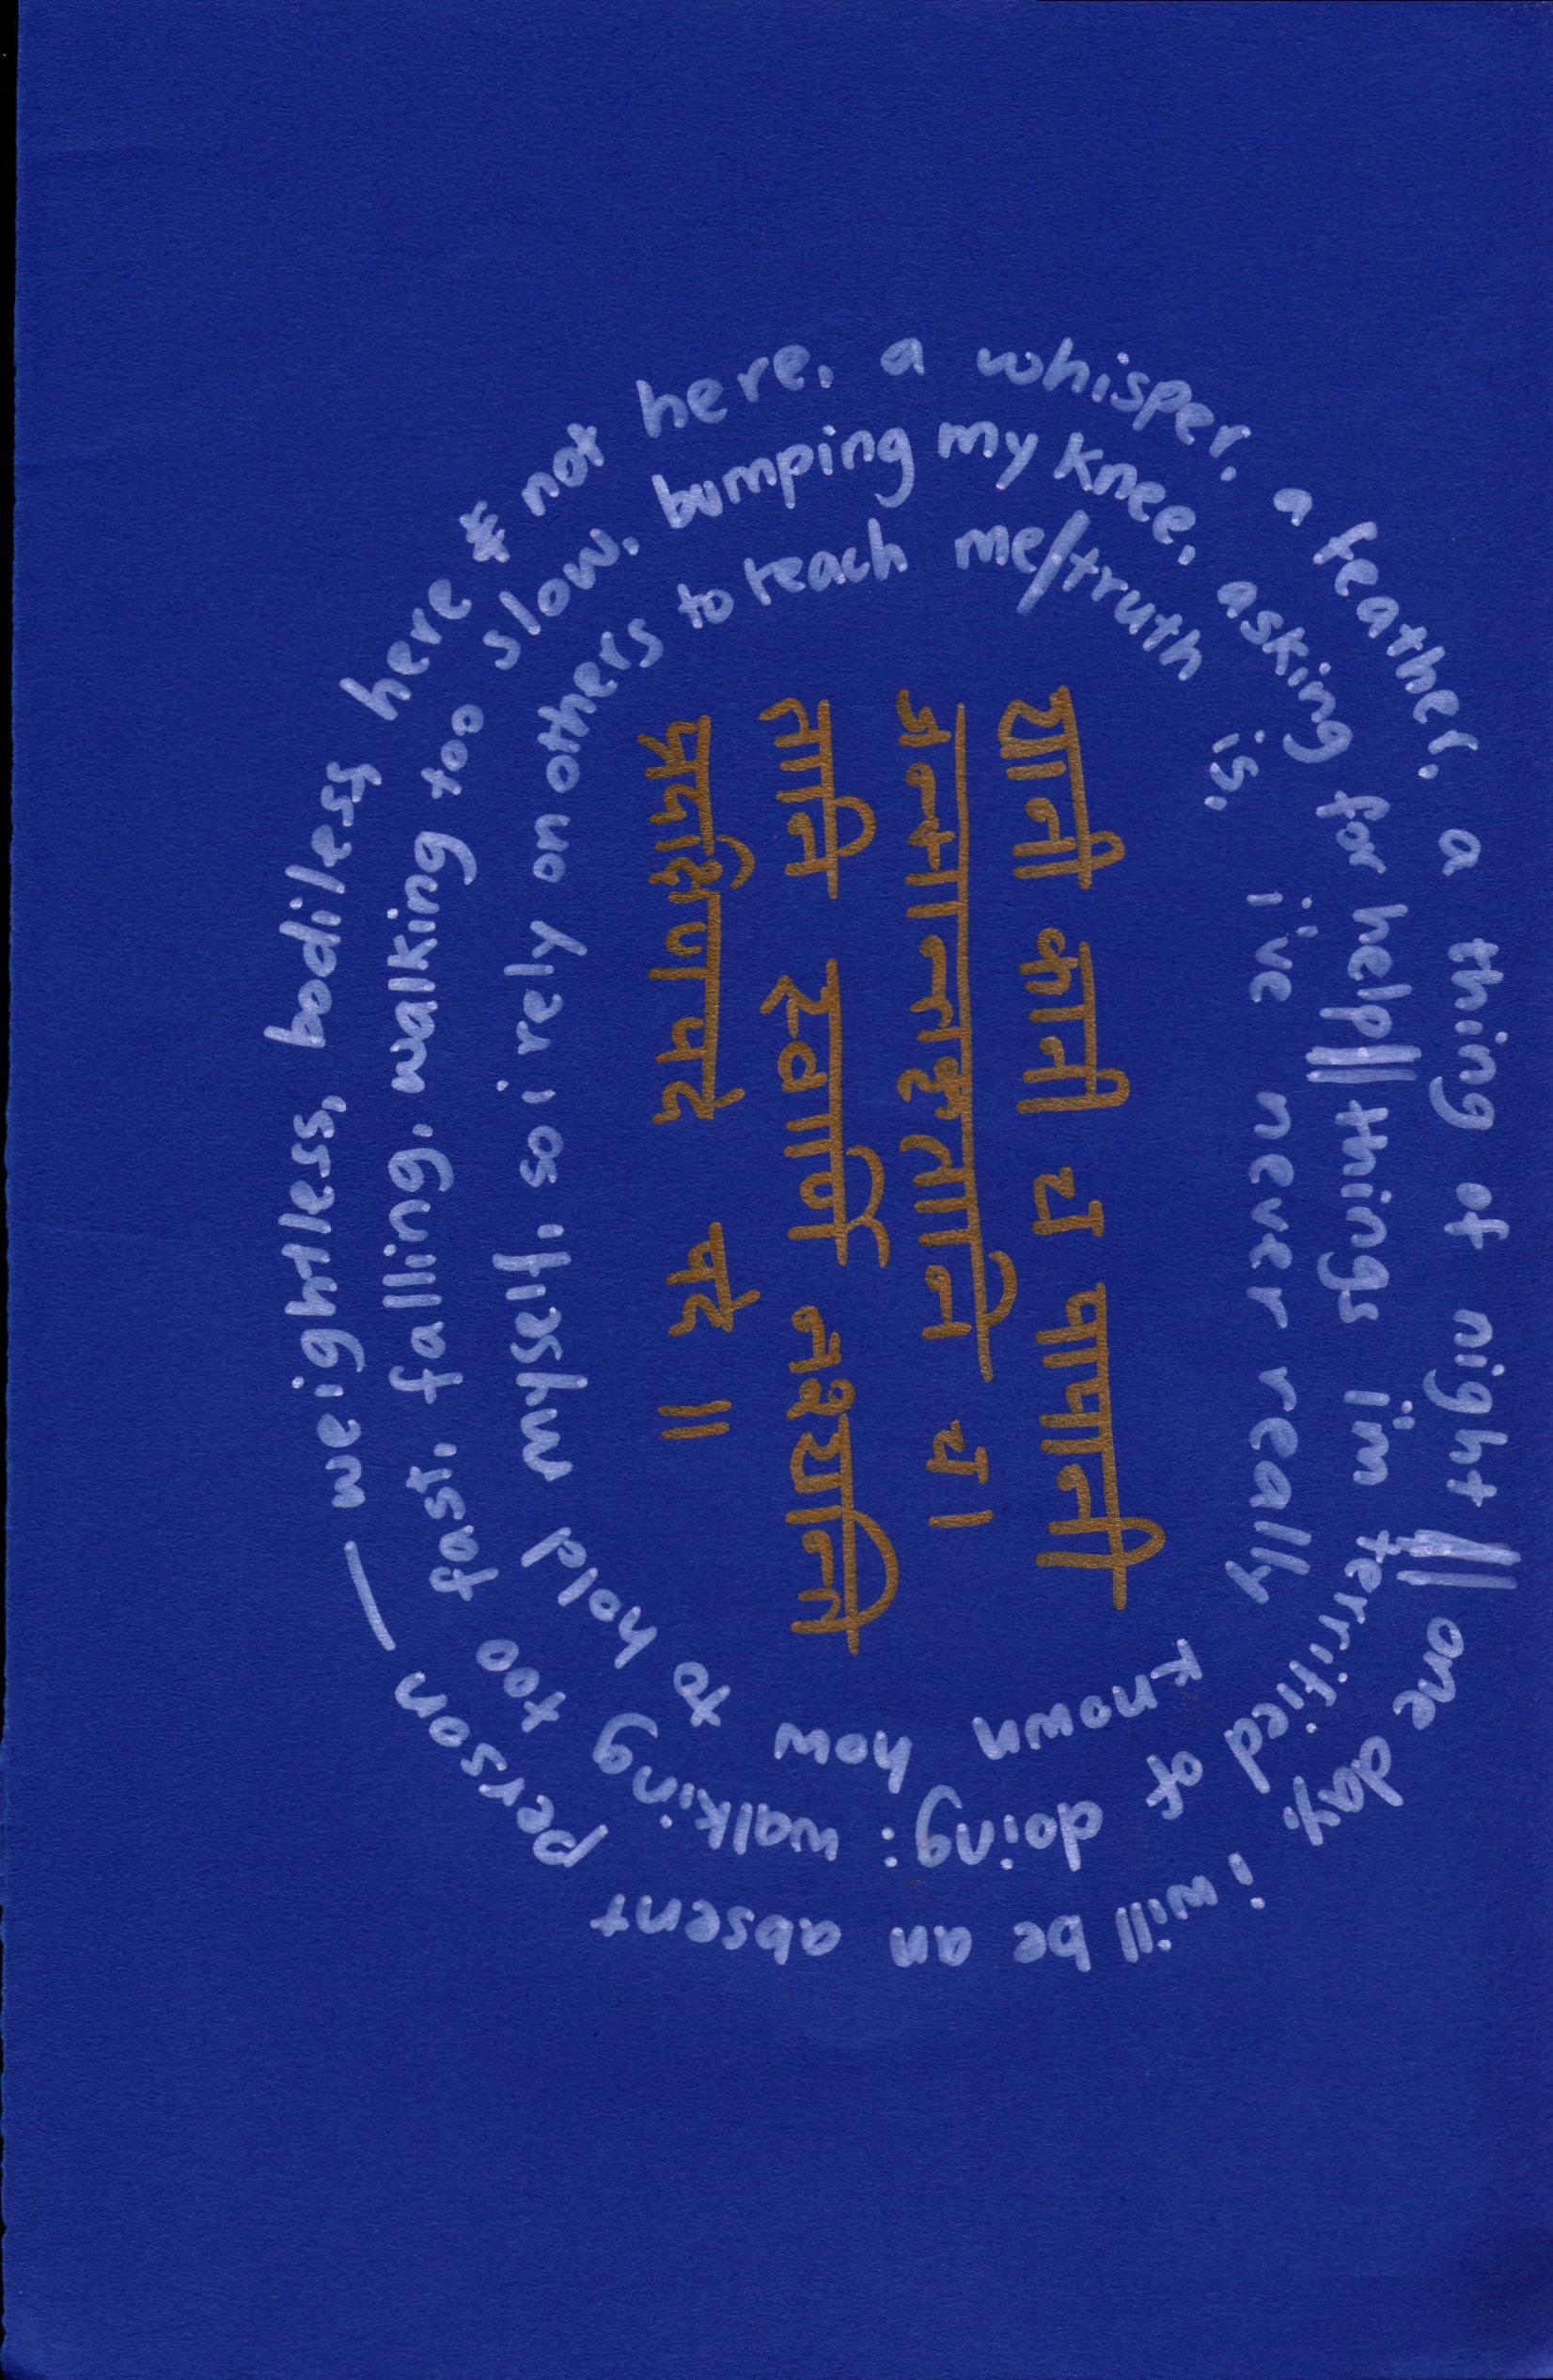 one day, i will be an absent person — weightless, bodiless here & not here, a whisper, a feather, a thing of night ||
things i'm terrified of doing: walking too fast, falling, walking too slow, bumping my knee, asking for help ||
truth is, i've never really known how to hold myself, so i rely on others to teach me/
यानी कानी च पापानी
जन्मान्तकृतानि च।
तानि स्वाणि नश्यन्ति
प्रदक्षिणपदे पदे ॥